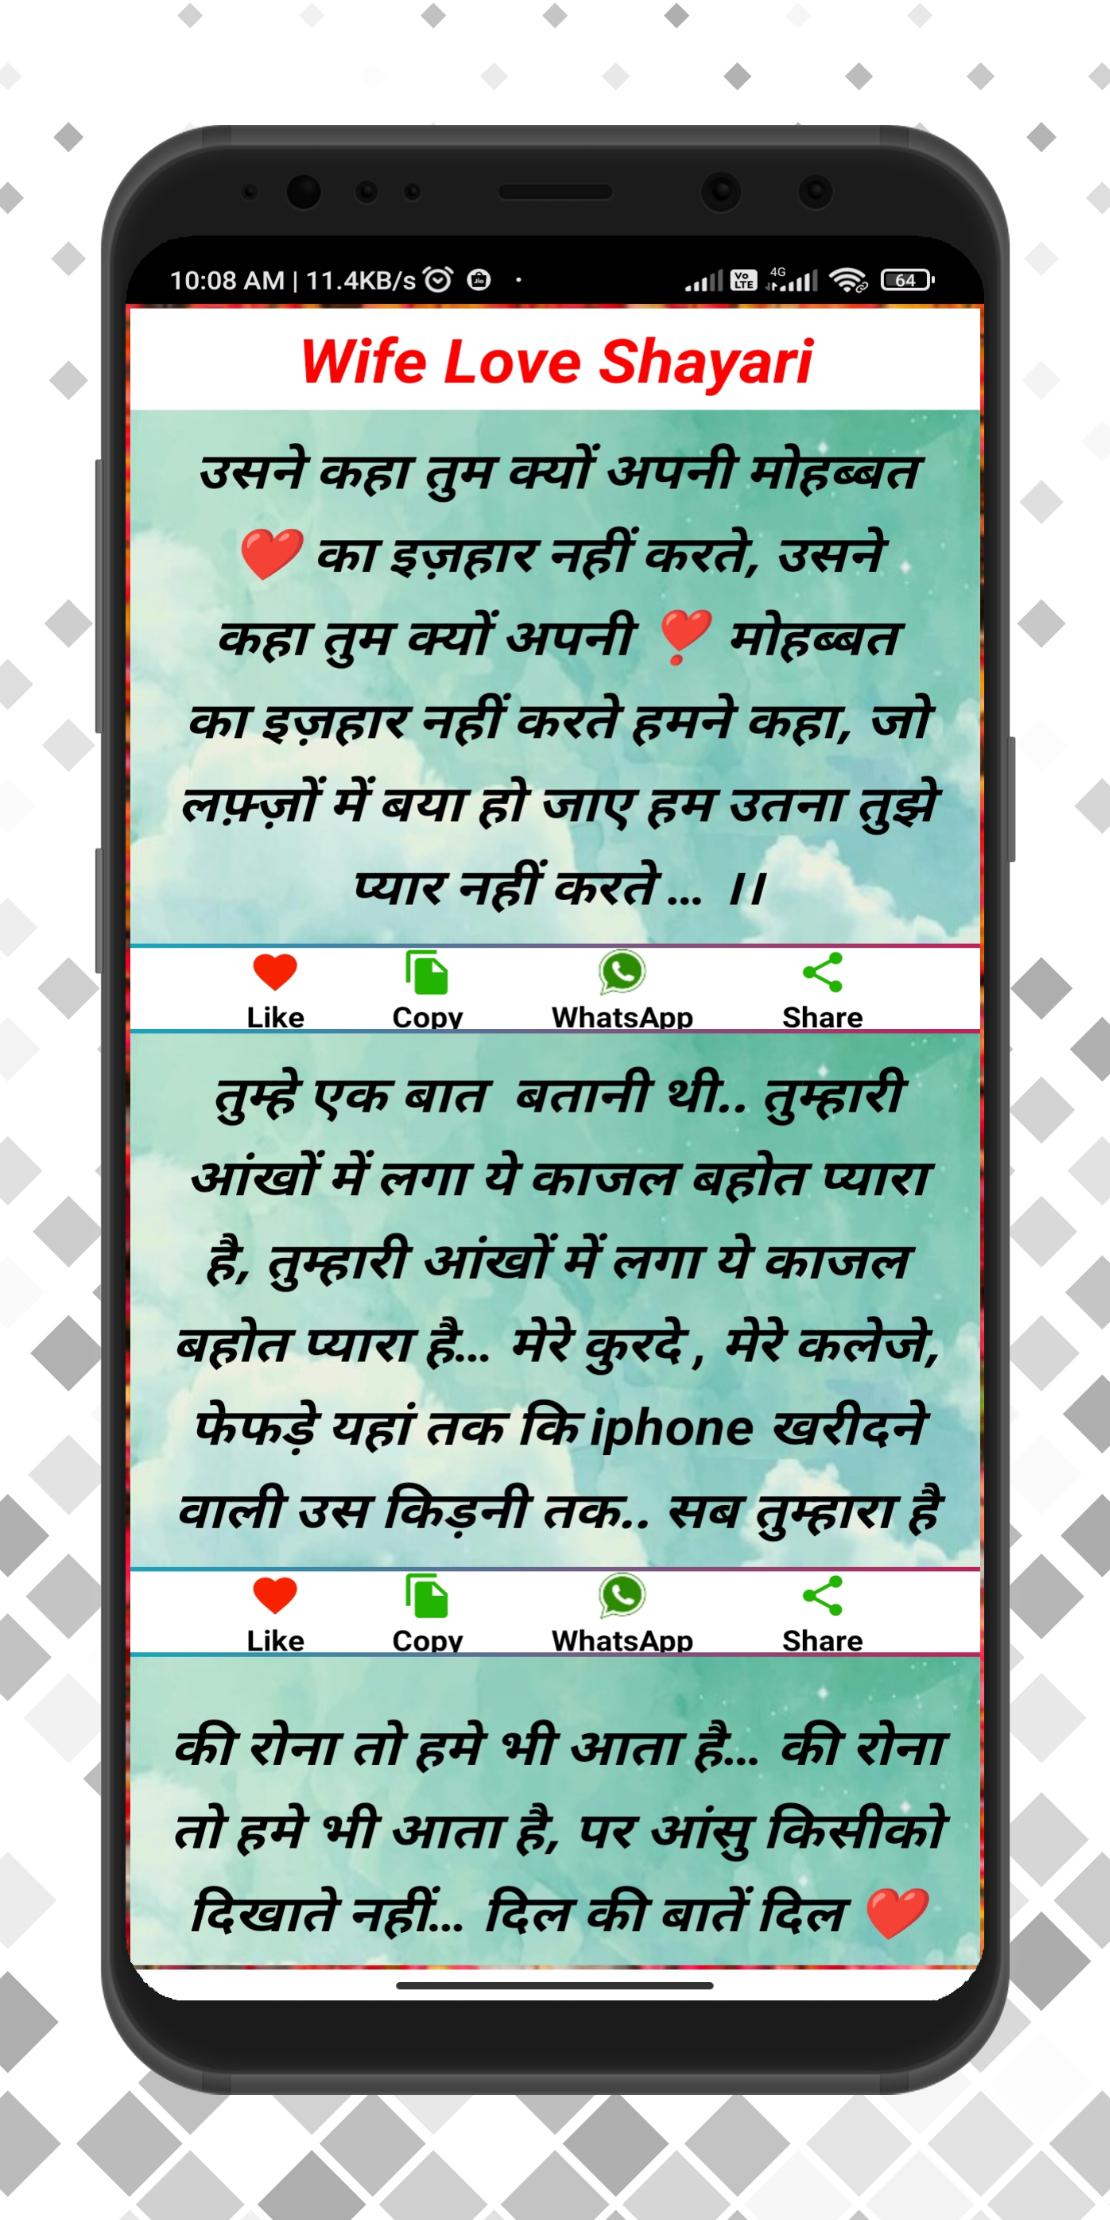 10:08 AM | 11.4KB/s
Vo LTE 4G 64
Wife Love Shayari
उसने कहा तुम क्यों अपनी मोहब्बत
❤️ का इज़हार नहीं करते, उसने
कहा तुम क्यों अपनी ❣️ मोहब्बत
का इज़हार नहीं करते हमने कहा, जो
लफ़्ज़ों में बया हो जाए हम उतना तुझे
प्यार नहीं करते ... ।।
Like Copy WhatsApp Share
तुम्हे एक बात  बतानी थी.. तुम्हारी
आंखों में लगा ये काजल बहोत प्यारा
है, तुम्हारी आंखों में लगा ये काजल
बहोत प्यारा है... मेरे कुरदे , मेरे कलेजे,
फेफड़े यहां तक कि iphone खरीदने
वाली उस किड़नी तक.. सब तुम्हारा है
Like Copy WhatsApp Share
की रोना तो हमे भी आता है... की रोना
तो हमे भी आता है, पर आंसु किसीको
दिखाते नहीं... दिल की बातें दिल ❤️